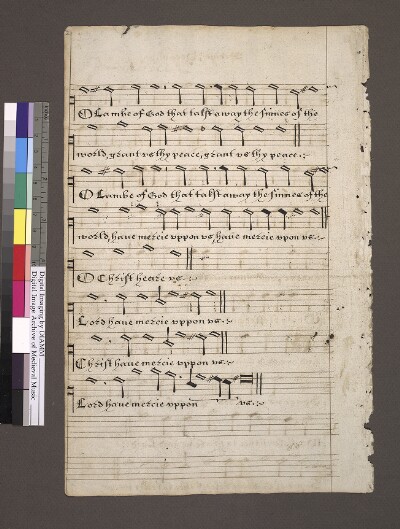 O Lambe of God that takst away the sinnes of the
world, grant vs thy peace, grant vs thy peace.
O Lambe of God that takst away the sinnes of the
world, haue mercie vppon vs, haue mercie vpon vs.
O Christ heare vs.
Lord haue mercie vppon vs.
Christ haue mercie vppon vs.
Lord haue mercie vppon vs.
Digital Imaging by DIAMM
Digital Image Archive of Medieval Music